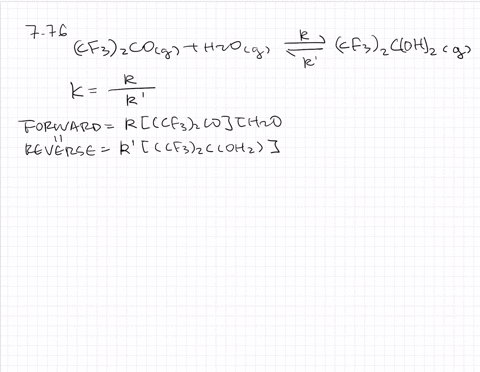 7.76
(CF3)2CO(g) + H2O(g) ⇌ (CF3)2C(OH)2(g)
k
k'
K = k / k'
FORWARD = k[(CF3)2CO][H2O
=
REVERSE = k'[(CF3)2C(OH2)]